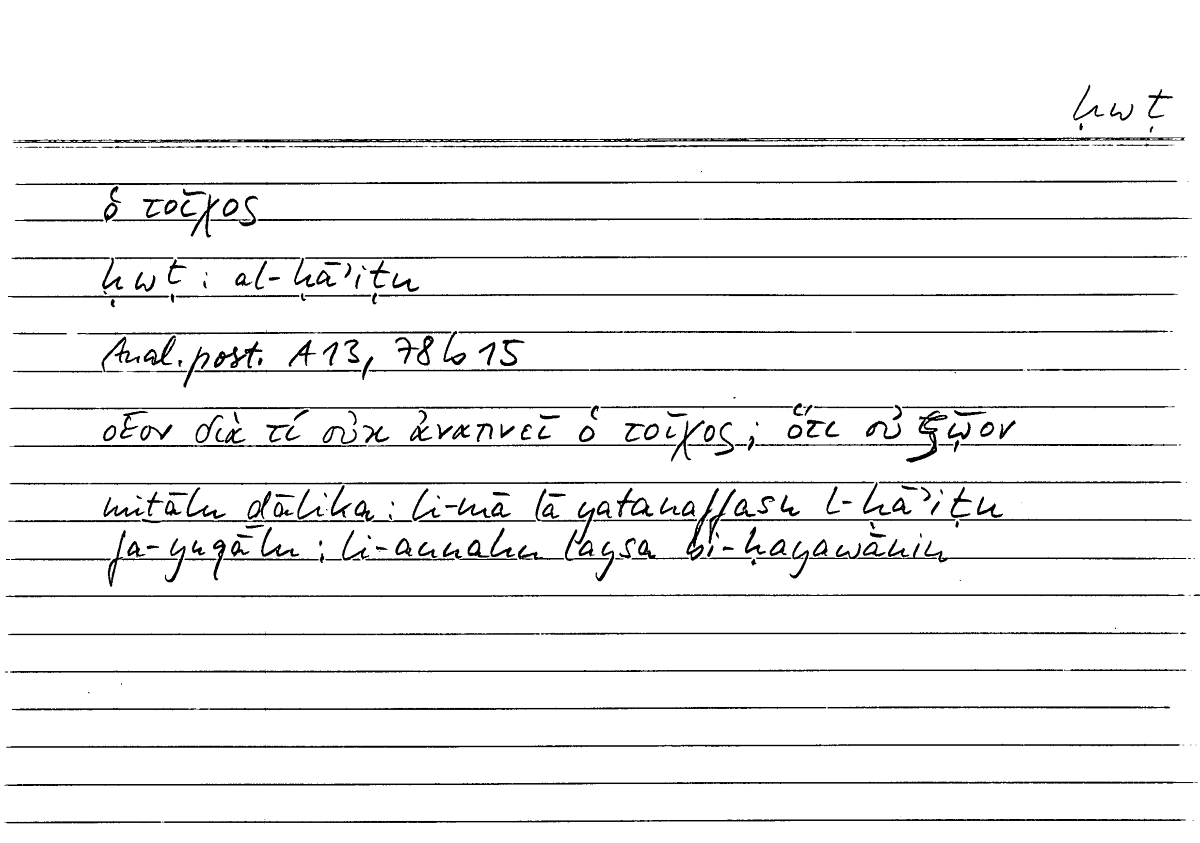 ḥwṭ
ὁ τοῖχος
ḥwṭ : al-ḥā’iṭu
Anal. post. A 13, 78 b 15
οἷον διὰ τί οὐκ ἀναπνεῖ ὁ τοῖχος; ὅτι οὐ ζῷον
miṯālu ḏālika : li-mā lā yatanaffasu l-ḥā’iṭu
fa-yuqālu : li-annahu laysa bi-ḥayawānin